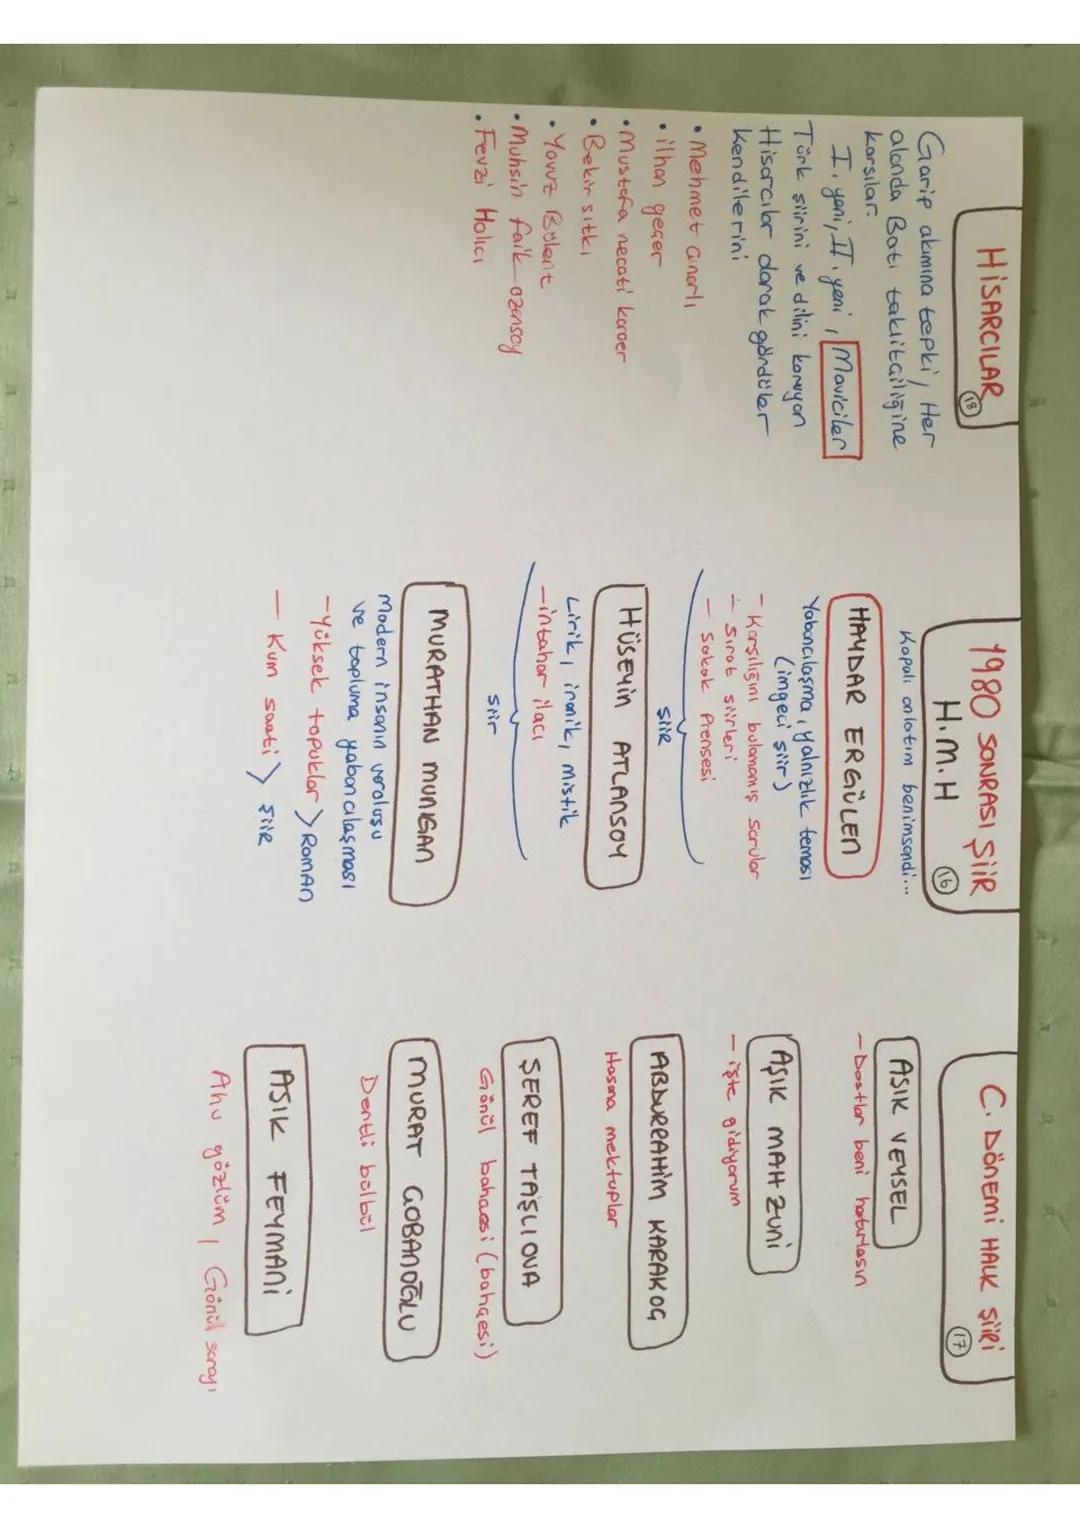 HİSARCILAR
18
Garip akımına tepki, Her
alanda Batı taklitçiliğine
karşılar.
I. yeni, II. yeni, Maviciler
Türk şiirini ve dilini koruyan
Hisarcılar olarak gördüler
kendilerini
• Mehmet çınarlı
• ilhan geçer
• Mustafa necati karaer
• Bekir sıtkı
• Yavuz Bülent
• Muhsin faik ozansoy
• Fevzi Halıcı
1980 SONRASI ŞİİR
H.M.H
16
Kapalı anlatım benimsendi...
HAYDAR ERGÜLEN
Yabancılaşma, yalnızlık teması
(imgeci şiir)
- Karşılığını bulamamış sorular
- sırat şiirleri
- Sokak Prensesi
ŞİİR
HÜSEYİN ATLANSOY
Lirik, ironik, mistik
- intahar ilacı
şiir
MURATHAN MUNGAN
Modern insanın varoluşu
ve topluma yabancılaşması
- Yüksek topuklar > ROMAN
- Kum saati > ŞİİR
C. DÖNEMİ HALK ŞİİRİ
17
AŞIK VEYSEL
- Dostlar beni hatırlasın
AŞIK MAHZUNİ
- işte gidiyorum
ABDURRAHİM KARAKOÇ
Hasana mektuplar
ŞEREF TAŞLIOVA
Gönül bahçesi (bahçesi)
MURAT ÇOBANOĞLU
Dertli bülbül
AŞIK FEYMANİ
Ahu gözlüm / Gönül sarayı